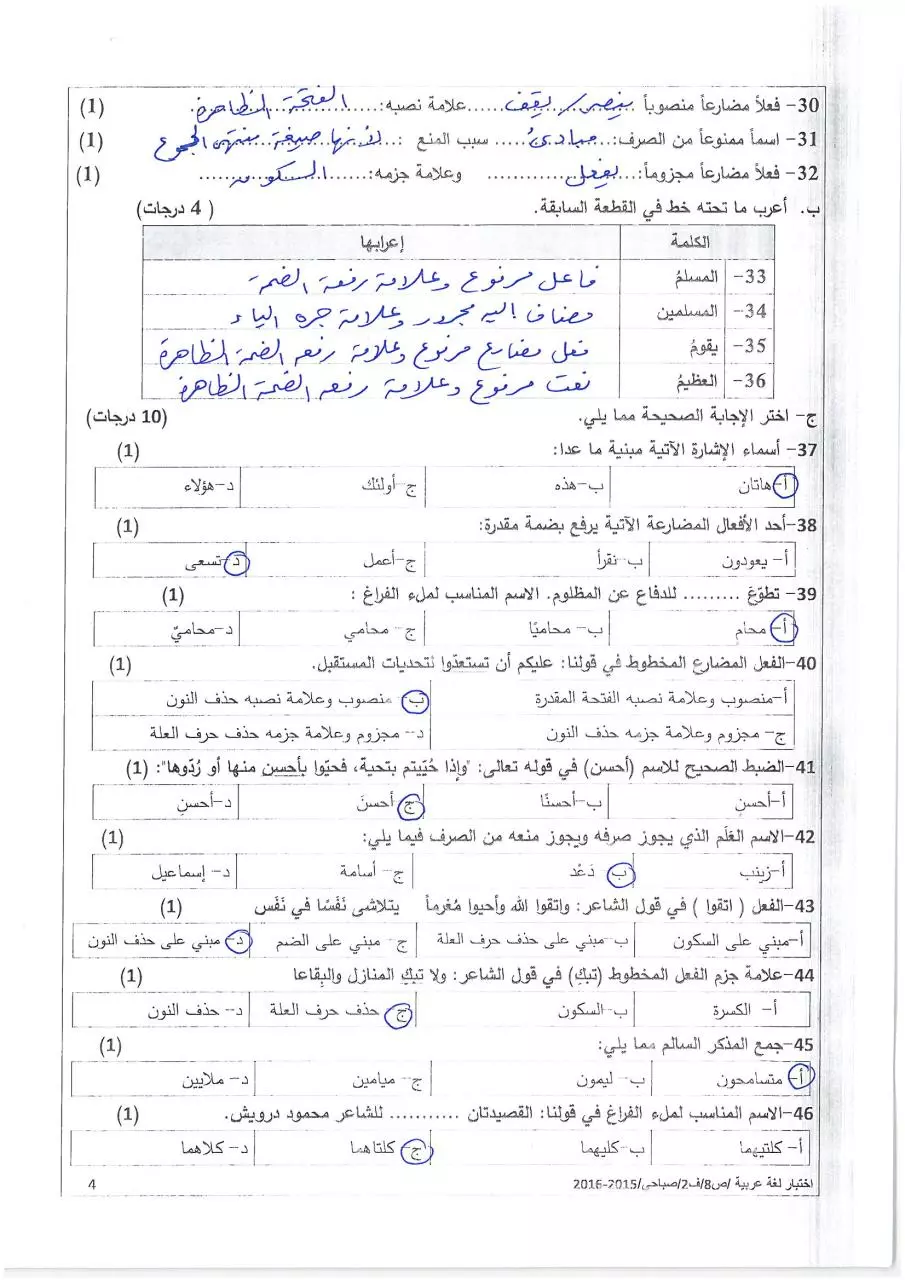 30- فعلاً مضارعاً منصوباً ينصر/ يقف...... علامة نصبه:.... الفتحة الظاهرة. (1)
31- اسماً ممنوعاً من الصرف:... مبادئُ..... سبب المنع :..لأنها صيغة منتهى الجموع (1)
32- فعلاً مضارعاً مجزوماً:... يفعل............ وعلامة جزمه:....... السكون....... (1)
ب. أعرب ما تحته خط في القطعة السابقة. ( 4 درجات)
الكلمة إعرابها
33- المسلمُ فاعل مرفوع وعلامة رفعة الضمة
34- المسلمين مضاف اليه مجرور وعلامة جره الياء
35- يقومُ فعل مضارع مرفوع وعلامة رفعه الضمة الظاهرة
36- العظيمُ نعت مرفوع وعلامة رفعه الضمة الظاهرة
ج- اختر الإجابة الصحيحة مما يلي. (10 درجات)
37- أسماء الإشارة الآتية مبنية ما عدا: (1)
أ- هاتان ب- هذه ج- أولئك د- هؤلاء
38-أحد الأفعال المضارعة الآتية يرفع بضمة مقدرة: (1)
أ- يعودون ب- نقرأ ج-أعمل د-تسعى
39- تطوّع ......... للدفاع عن المظلوم. الاسم المناسب لملء الفراغ : (1)
أ- محام ب- محاميًا ج- محامي د-محاميٌ
40-الفعل المضارع المخطوط في قولنا: عليكم أن تستعدّوا لتحديات المستقبل. (1)
أ-منصوب وعلامة نصبه الفتحة المقدرة ب- منصوب وعلامة نصبه حذف النون
ج- مجزوم وعلامة جزمه حذف النون د-- مجزوم وعلامة جزمه حذف حرف العلة
41-الضبط الصحيح للاسم (أحسن) في قوله تعالى: "وإذا حُيّيتم بتحية، فحيّوا بأحسن منها أو رُدّوها": (1)
أ-أحسنِ ب-أحسنًا ج- أحسنَ د-أحسنٍ
42-الاسم العَلَم الذي يجوز صرفه ويجوز منعه من الصرف فيما يلي: (1)
أ-زينب ب- دَعْد ج- أسامة د- إسماعيل
43-الفعل ( اتقوا ) في قول الشاعر: واتقوا الله وأحيوا مُغرماً يتلاشى نَفَسًا في نَفَس (1)
أ-مبني على السكون ب-مبني على حذف حرف العلة ج- مبني على الضم د- مبني على حذف النون
44-علامة جزم الفعل المخطوط (تبكِ) في قول الشاعر: ولا تبكِ المنازل والبِقاعا (1)
أ- الكسرة ب-السكون ج- حذف حرف العلة د-- حذف النون
45-جمع المذكر السالم مما يلي: (1)
أ- متسامحون ب- ليمون ج- ميامين د- ملايين
46-الاسم المناسب لملء الفراغ في قولنا: القصيدتان ........... للشاعر محمود درويش. (1)
أ- كلتيهما ب-كليهما ج- كلتاهما د- كلاهما
اختبار لغة عربية /ص8/ف2/صباحي/2015-2016 4